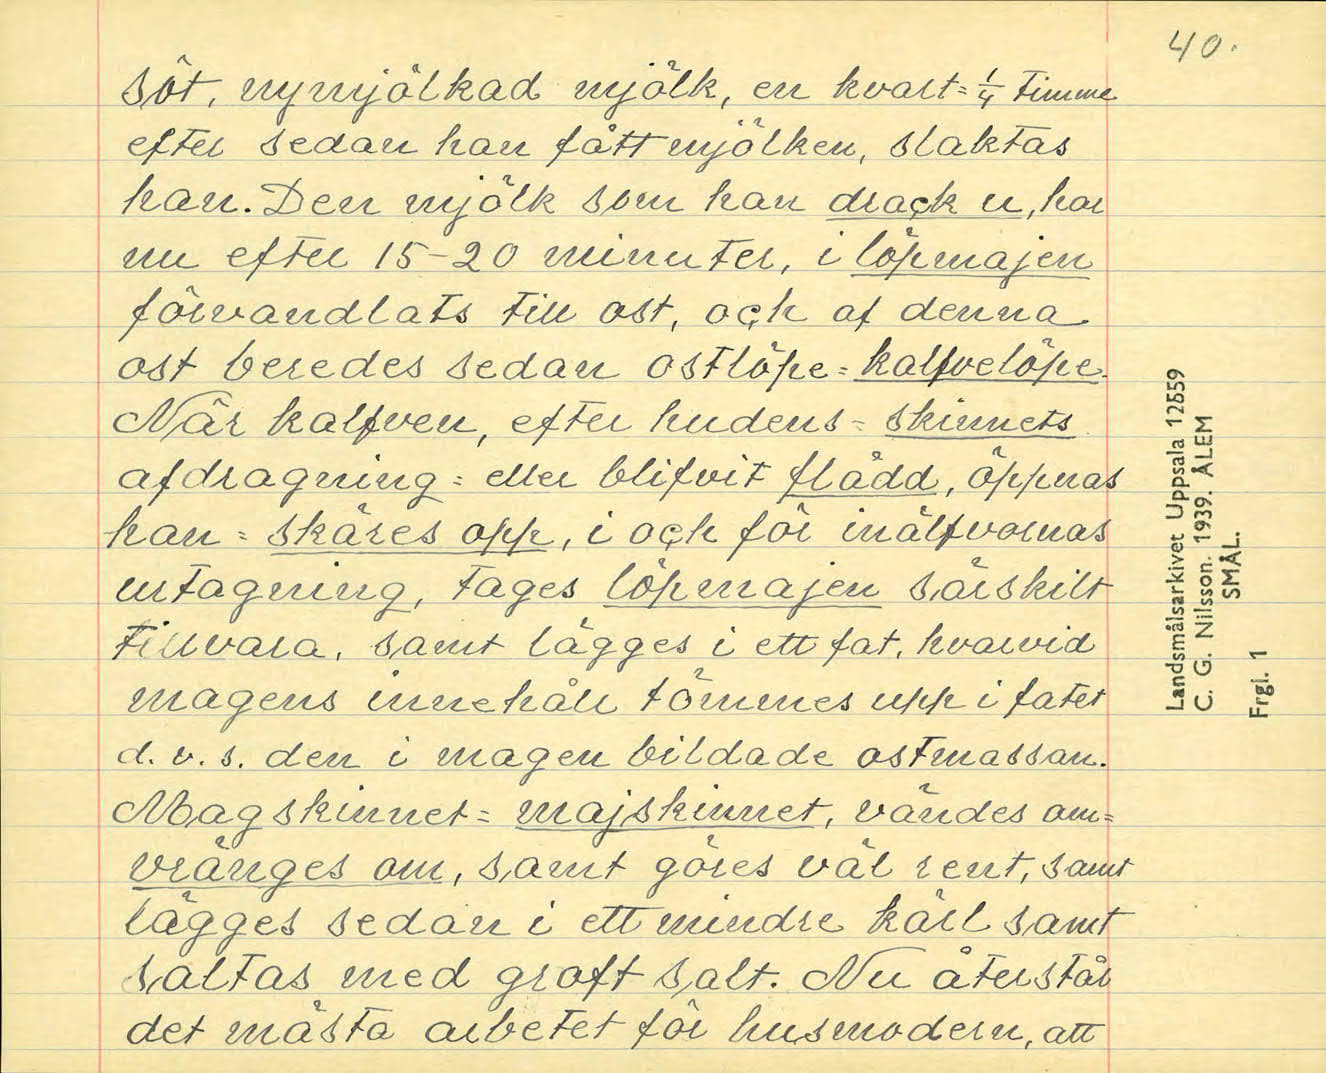 40.
söt, nymjölkad mjölk, en kvart = 1/4 timme
efter sedan han fått mjölken, slaktas
han. Den mjölk som han drack u, har
nu efter 15-20 minuter, i löpmajen
förvandlats till ost, och af denna
ost beredes sedan ostlöpe = kalfvelöpe.
När kalfven, efter hudens = skinnets
afdragning = eller blifvit flådd, öppnas
han = skäres opp, i och för inälfvornas
urtagning, tages löpmajen särskilt
tillvara, samt lägges i ett fat, hvarvid
magens innehåll tömmes upp i fatet
d. v. s. den i magen bildade ostmassan.
Magskinnet = majskinnet, vändes om =
vränges om, samt göres väl rent, samt
lägges sedan i ett mindre kärl samt
saltas med groft salt. Nu återstår
det mästa arbetet för husmodern, att
Landsmålsarkivet Uppsala 12559
C. G. Nilsson. 1939. ÅLEM
SMÅL.
Frgl. 1